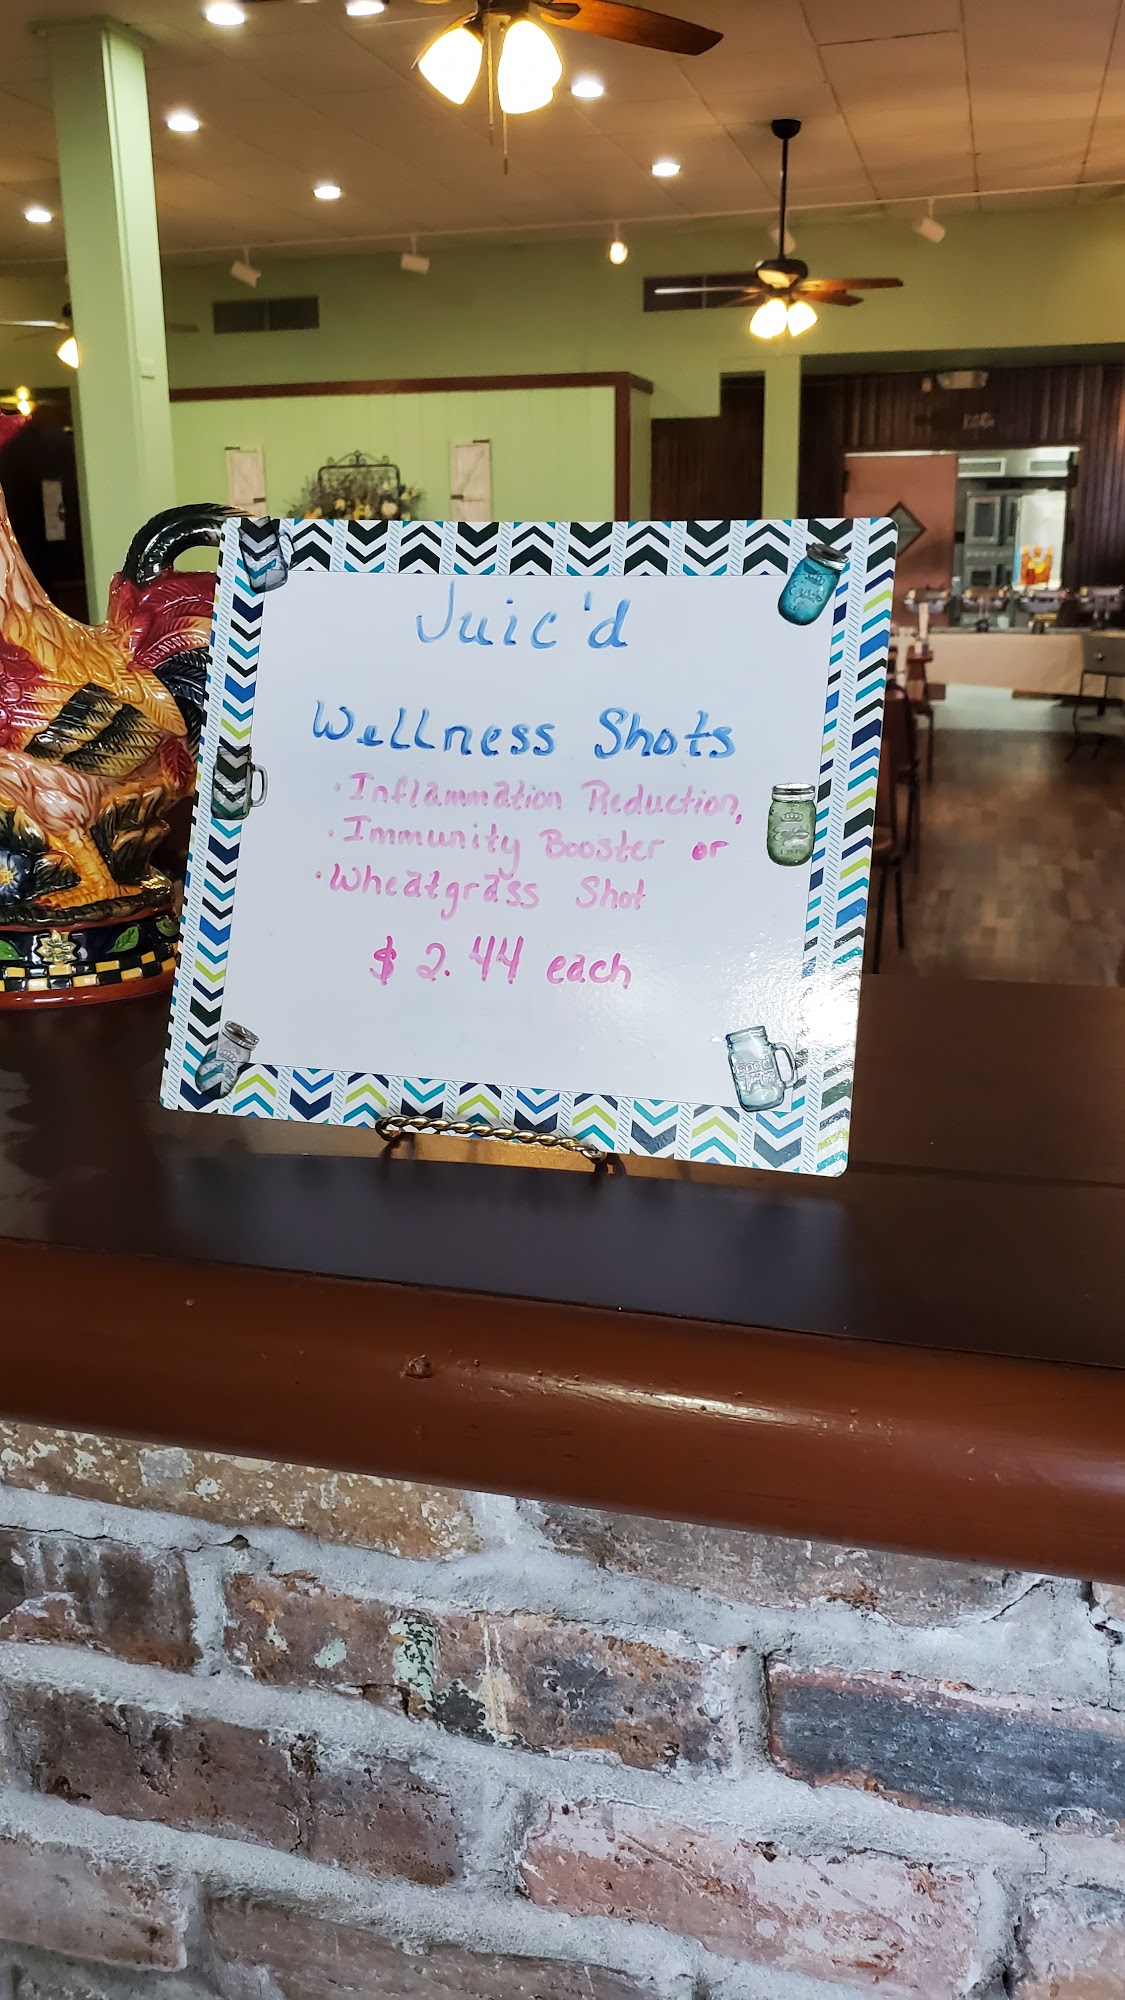 Juic'd
Wellness Shots
· Inflammation Reduction,
· Immunity Booster or
· Wheatgrass Shot
$ 2.44 each